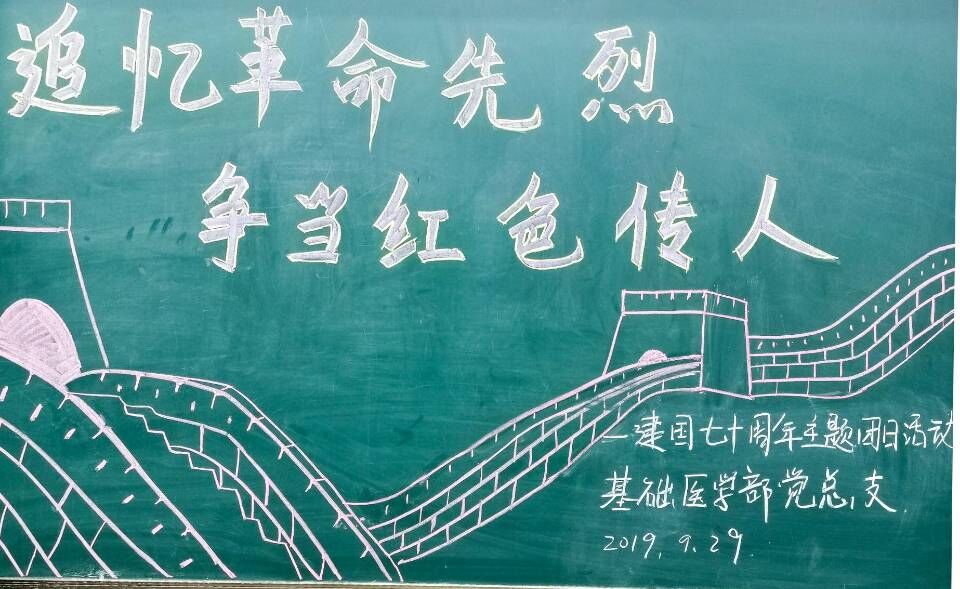 追忆革命先烈
争当红色传人
—建国七十周年主题团日活动
基础医学部党总支
2019.9.29